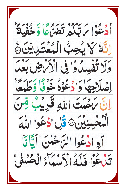 اُدْعُوْا رَبَّكُمْ تَضَرُّعًا وَّخُفْيَةً
اِنَّهٗ لَا يُحِبُّ الْمُعْتَدِيْنَ
وَلَا تُفْسِدُوْا فِى الْاَرْضِ بَعْدَ
اِصْلَاحِهَا وَادْعُوْهُ خَوْفًا وَّطَمَعًا
اِنَّ رَحْمَتَ اللّٰهِ قَرِيْبٌ مِّنَ
الْمُحْسِنِيْنَ قُلِ ادْعُوا اللّٰهَ
اَوِ ادْعُوا الرَّحْمٰنَ اَيًّا مَّا
تَدْعُوْا فَلَهُ الْاَسْمَآءُ الْحُسْنٰى